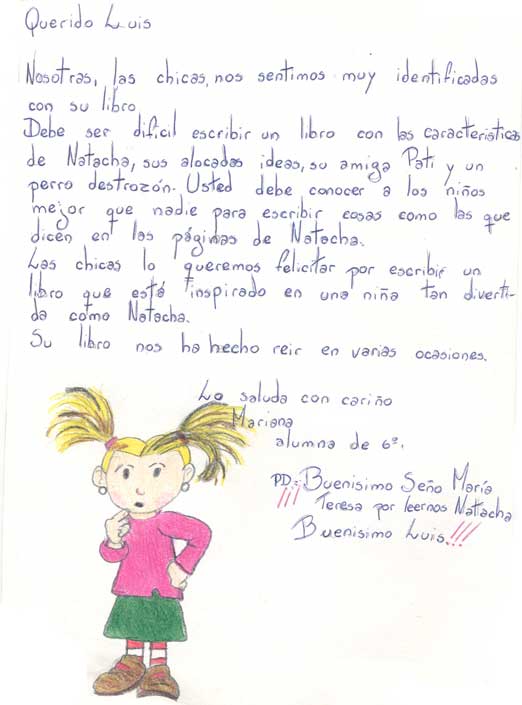 Querido Luis
Nosotras, las chicas, nos sentimos muy identificadas
con su libro
Debe ser dificil escribir un libro con las caracteristicas
de Natacha, sus alocadas ideas, su amiga Pati y un
perro destrozón. Usted debe conocer a los niños
mejor que nadie para escribir cosas como las que
dicen en las páginas de Natacha.
Las chicas lo queremos felicitar por escribir un
libro que está inspirado en una niña tan diverti-
da como Natacha.
Su libro nos ha hecho reir en varias ocasiones.
Lo saluda con cariño
Mariana
alumna de 6º.
PD: ¡¡¡Buenisimo Seño María
Teresa por leernos Natacha
Buenisimo Luis.!!!